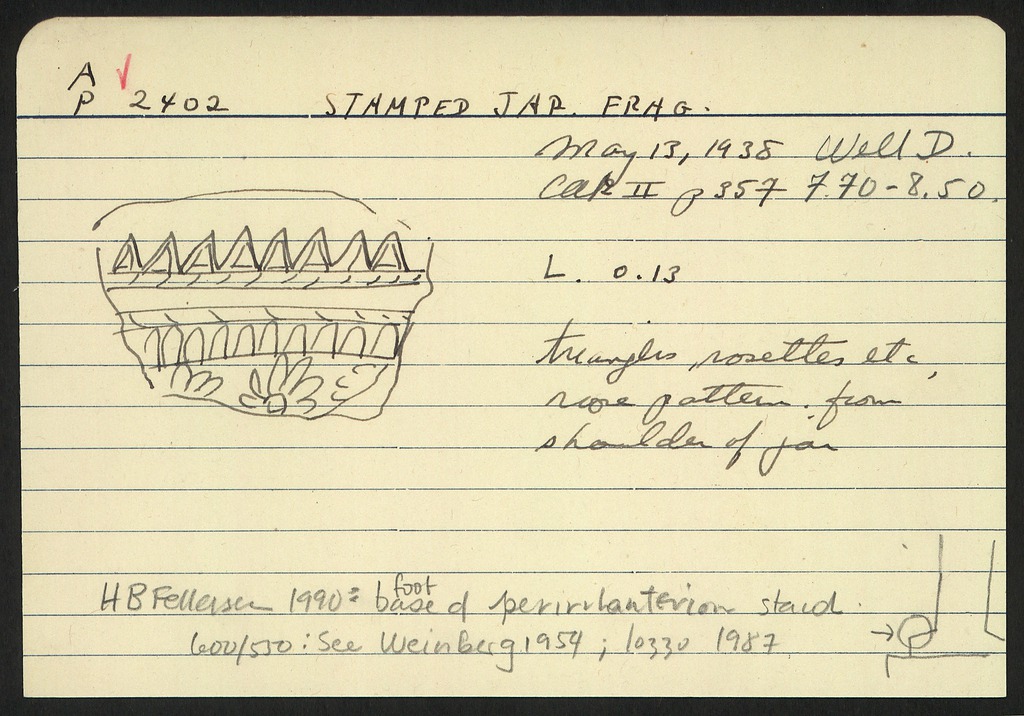 A
P 2402 STAMPED JAR. FRAG.
May 13, 1938 Well D.
II p 357 7.70-8.50.
L. 0.13
triangles, rosettes etc,
rare pattern. from
shoulder of jar
HB 1990: foot
base of stand.
600/550: See Weinberg 1954; Iozzo 1987